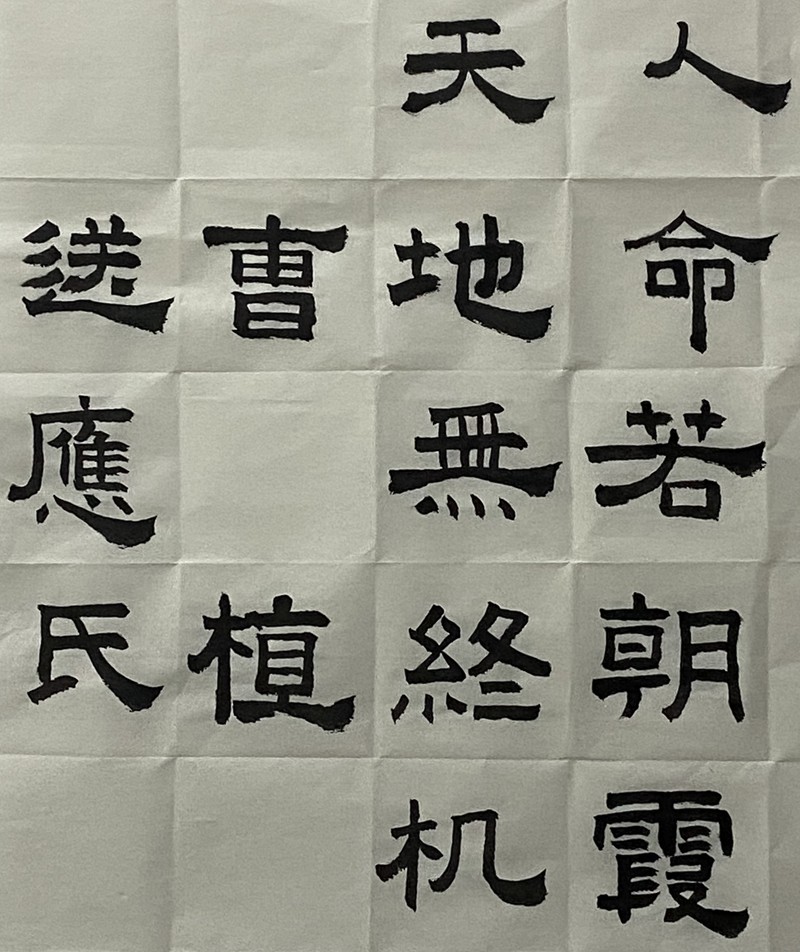 人命若朝霞
天地無終机
曹植
送應氏